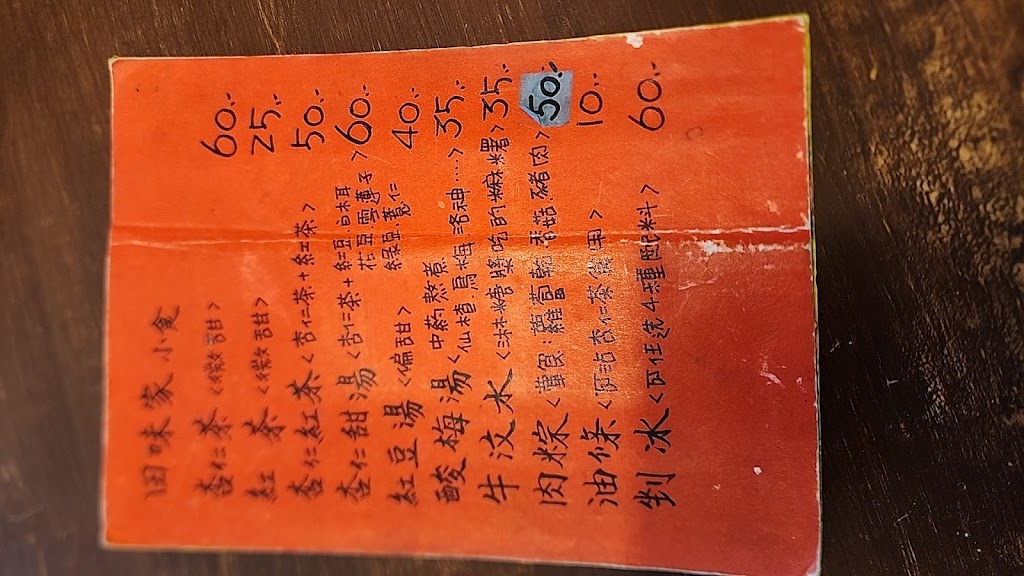 田味家小食
杏仁茶<微甜> 60.-
紅茶<微甜> 25.-
杏仁紅茶<杏仁茶+紅茶> 50.-
杏仁甜湯<杏仁茶+紅豆.白木耳 花豆.雪蓮子> 60.-
紅豆湯<偏甜> 綠豆.薏仁 40.-
酸梅湯<中藥熬煮 仙楂.烏梅.洛神....> 35.-
牛汶水<淋糖漿吃的麻糬> 35.-
肉粽<葷食:蘿蔔乾.香菇.豬肉> 50.-
油條<可沾杏仁茶食用> 10.-
剉冰<可任选4種配料> 60.-